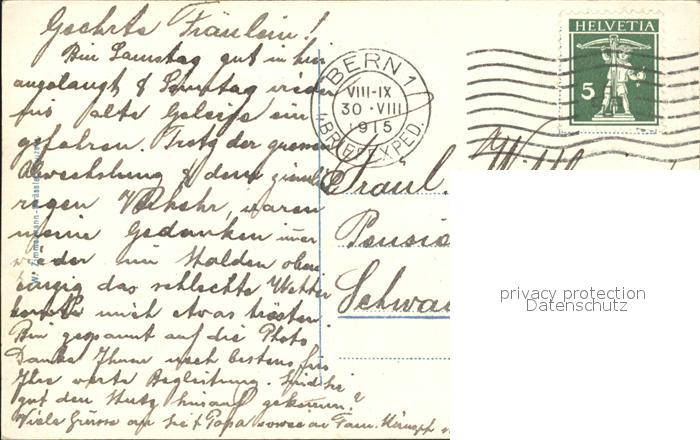 Geehrte Fräulein!
Bin Samstag gut in hier
angelangt & Sonntag wieder
ins alte Geleise ein
gefahren. Trotz der grossen
Abwechslung & dem ziemlich
regen Verkehr, waren
meine Gedanken imer
wieder im Halden oben
Einzig das schlechte Wetter
konnte mich etwas trösten
Bin gespannt auf die Photo
Danke Ihnen noch bestens für
Ihre werte Begleitung. Sind Sie
gut den Stutz hinauf gekommen?
Viele Grüsse an Sie & Papa sowie an Fam.
BERN 1
VIII-IX
30 · VIII
1915
BRIEFEXPED.
HELVETIA
5
Fräul.
Pensio
Schwa
W. Zimmermann
privacy protection
Datenschutz